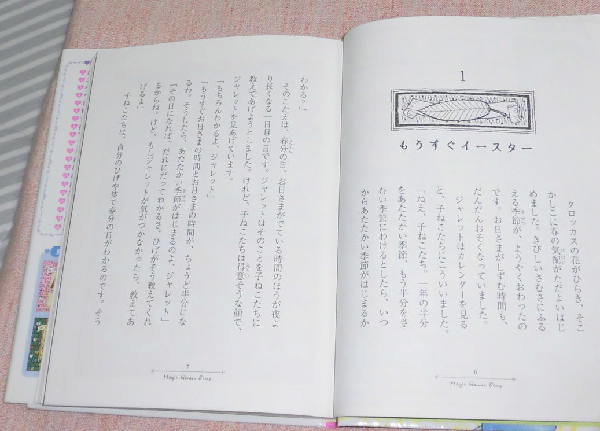 1
もうすぐイースター
クロッカスの花がひらき、そこ
かしこに春の気配がただよいはじ
めました。きびしいさむさにふる
える季節が、ようやくおわったの
です。お日さまがしずむ時間も、
だんだんおそくなっていました。
ジャレットはカレンダーを見る
と、子ねこたちにこういいました。
「ねえ、子ねこたち。一年の半分
をあたたかい季節、もう半分をさ
むい季節にわけるとしたら、いつ
からあたたかい季節がはじまるか
6
Magic Garden Story
わかる?」
そのこたえは、春分の日。お日さまがでている時間のほうが夜よ
り長くなる一日目の日です。ジャレットはそのことを子ねこたちに
教えてあげようとしました。けれど、子ねこたちは得意そうな顔で、
ジャレットを見あげています。
「もちろんわかるよ、ジャレット」
「もうすぐお日さまの時間と夜の時間が、ちょうど半分にな
るわ。そうしたら、あたたかい季節がはじまるのよ、ジャレット」
「その日になれば、だれにだってわかるさ。ひげがそう教えてくれ
るからね。けど、もしジャレットが気がつかなかったら、教えてあ
げるよ」
子ねこたちは、自分のひげや鼻で春分の日がわかるのです。そう
7